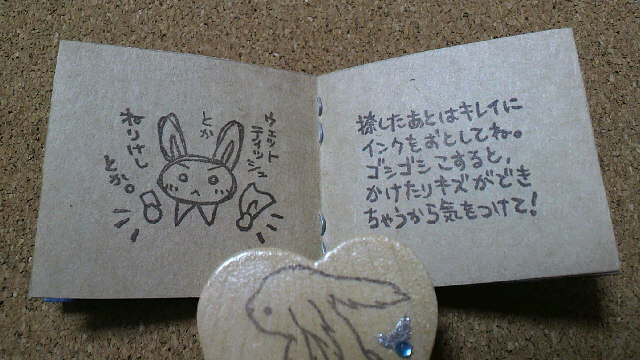 ウェット
ティッシュ
とか
ねりけし
とか。
捺したあとはキレイに
インクをおとしてね。
ゴシゴシこすると、
かけたりキズができ
ちゃうから気をつけて!